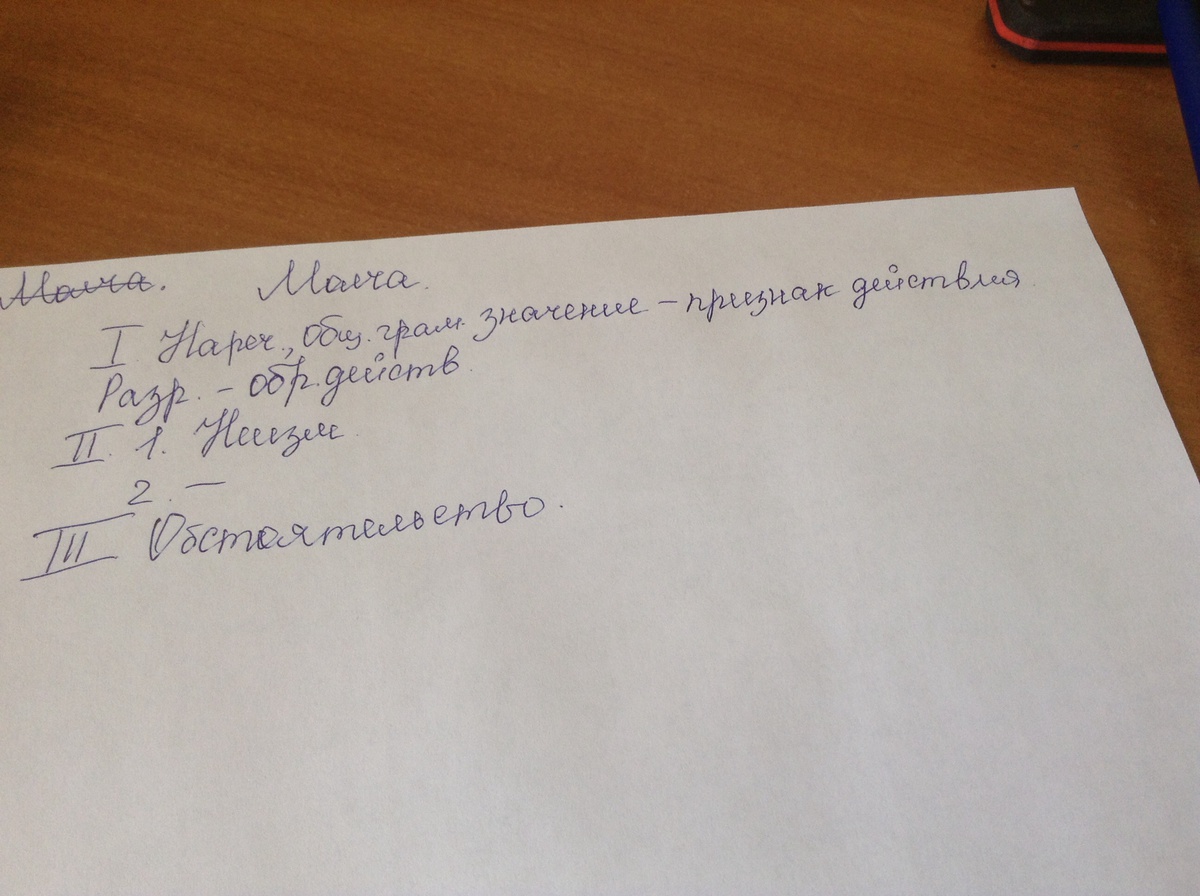 Молча. Молча.
I. Нареч., общ. грам. значение - признак действия
Разр. - обр. действ.
II. 1. Неизм.
2. —
III Обстоятельство.